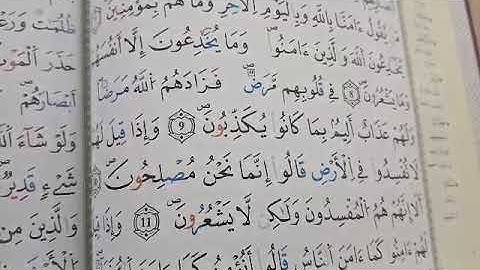 يَقُولُ ءَامَنَّا بِاللَّهِ وَبِالْيَوْمِ الَاخِرِ وَمَا هُم بِمُومِنِينَ
يُخَٰدِعُونَ اللَّهَ وَالَّذِينَ ءَامَنُواْ وَمَا يُخَٰدِعُونَ إِلَّا أَنفُسَهُمْ
وَمَا يَشْعُرُونَ 8 فِي قُلُوبِهِم مَّرَضٌ فَزَادَهُمُ اللَّهُ مَرَضًا
وَلَهُمْ عَذَابٌ أَلِيمٌ بِمَا كَانُواْ يُكَذِّبُونَ 9 وَإِذَا قِيلَ لَهُمْ
لَا تُفْسِدُواْ فِي الَارْضِ قَالُواْ إِنَّمَا نَحْنُ مُصْلِحُونَ
أَلَا إِنَّهُمْ هُمُ الْمُفْسِدُونَ وَلَٰكِن لَّا يَشْعُرُونَ 11 وَإِذَا
لَهُمُ ءَامِنُواْ كَمَا ءَامَنَ النَّاسُ قَالُواْ أَنُومِنُ كَمَا ءَامَنَ
ظُلُمَٰتٌ
حَذَرَ الْمَوْتِ
أَبْصَٰرَهُمْ
وَلَوْ شَآءَ
شَيْءٍ قَدِيرٌ
وَالَّذِينَ مِن